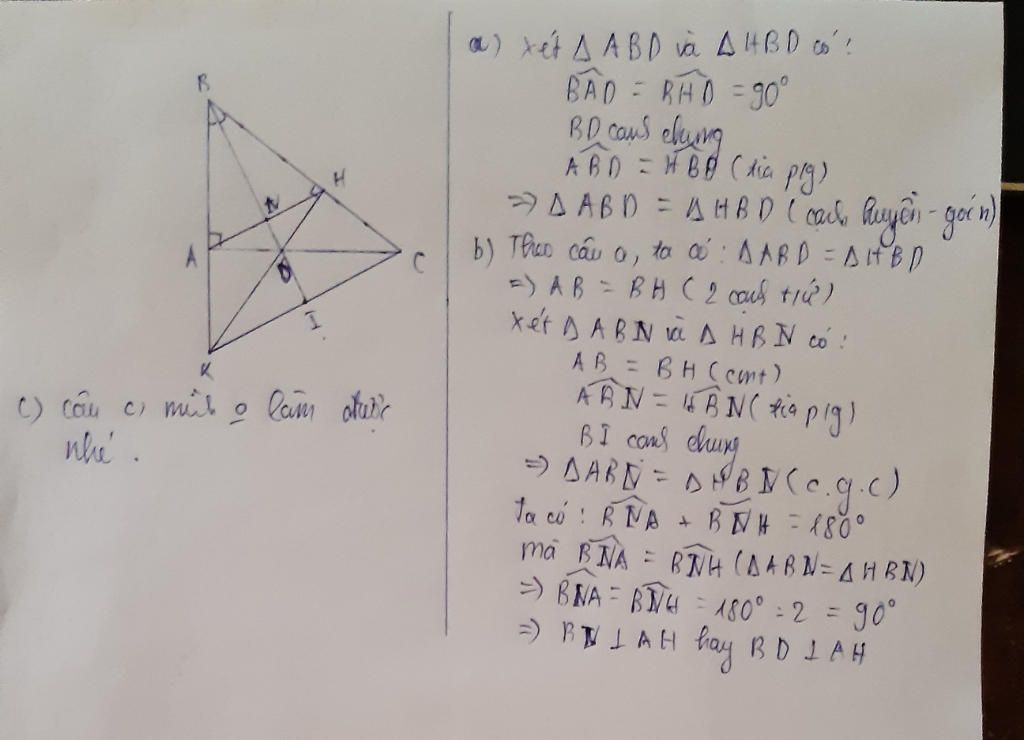 B
H
N
A
D
C
I
K
c) câu c, mình o làm được
nhé.
a) xét Δ ABD và Δ HBD có:
BAD = BHD = 90°
BD cạnh chung
ABD = HBD (tia p/g)
=> Δ ABD = Δ HBD (cạnh huyền - góc n)
b) Theo câu a, ta có: ΔABD = ΔHBD
=> AB = BH (2 cạnh t/ứ)
xét Δ ABN và Δ HBN có:
AB = BH (cmt)
ABN = HBN (tia p/g)
BI cạnh chung
=> ΔABN = ΔHBN (c.g.c)
Ta có: BNA + BNH = 180°
mà BNA = BNH (ΔABN = ΔHBN)
=> BNA = BNH = 180° : 2 = 90°
=> BN ⊥ AH hay BD ⊥ AH